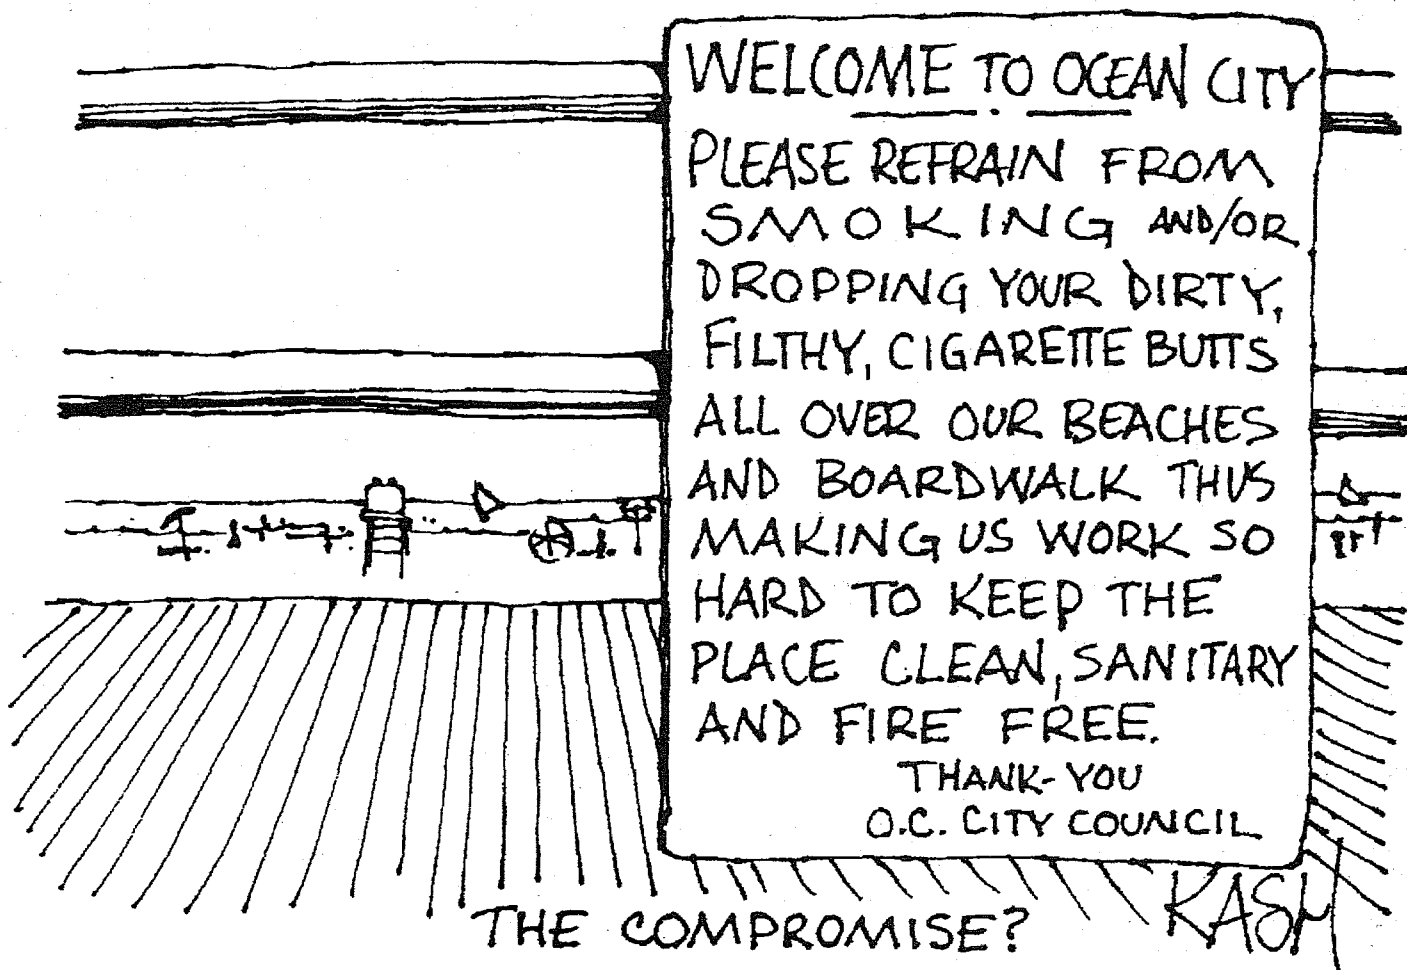 WELCOME TO OCEAN CITY
PLEASE REFRAIN FROM
SMOKING AND/OR
DROPPING YOUR DIRTY,
FILTHY, CIGARETTE BUTTS
ALL OVER OUR BEACHES
AND BOARDWALK THUS
MAKING US WORK SO
HARD TO KEEP THE
PLACE CLEAN, SANITARY
AND FIRE FREE.
THANK-YOU
O.C. CITY COUNCIL
KASH
THE COMPROMISE?